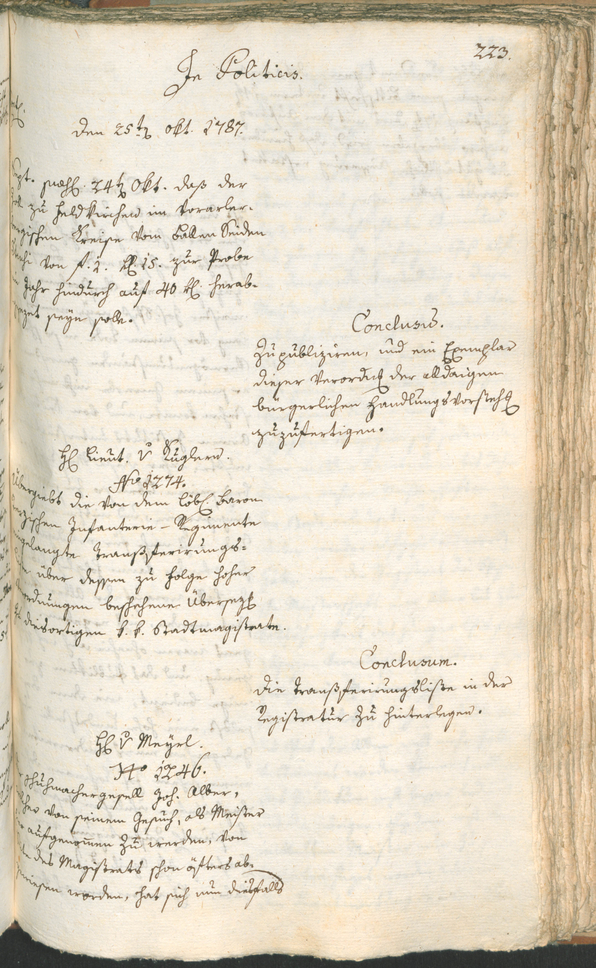 223.
In Politicis.
den 25t Okt. 1787.
24t Okt. daß der
zu Feldkirchen im Vorarler-
gischen Kreise vom Ballen Seiden
von f. 1. x 15. zur Probe
Jahr hindurch auf 40 x herab-
gesezt seyn solle.
Conclusis.
Zu publiziren, und ein Exemplar
dieser Verordng der alldaigen
bürgerlichen Handlungsvorstehg
zuzufertigen.
H Lieut. v Kuglern.
No 1274.
Übergiebt die von dem löbl Baron
Infanterie-Regimente
gelangte Transferirungs-
über dessen zu folge hoher
beschehene Übersezg
diesortigen k. k. Stadtmagistrate.
Conclusum.
die Transferirungsliste in der
Registratur zu hinterlegen.
H v Meyrl.
No 1246.
Schuhmachergesell Joh. Alber,
cher von seinem Gesuch, als Meister
aufgenommen zu werden, von
des Magistrats schon öfters ab-
gewiesen worden, hat sich nun diesfalls